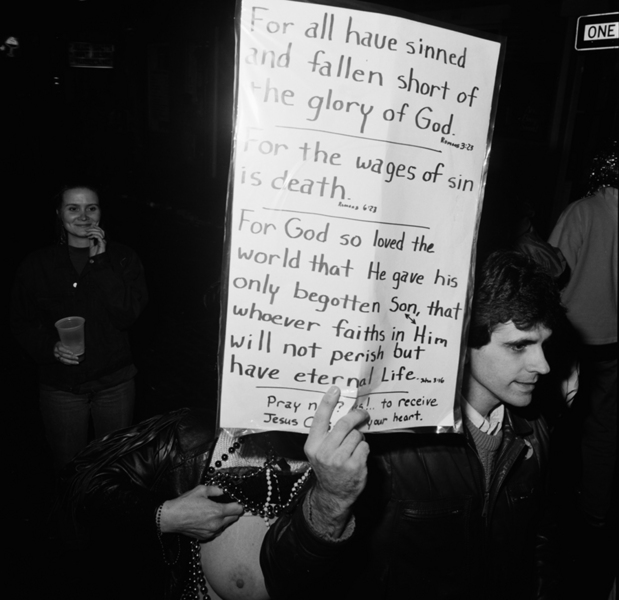 For all have sinned
and fallen short of
the glory of God.
Romans 3:23
For the wages of sin
is death.
Romans 6:23
For God so loved the
world that He gave his
only begotten Son, that
whoever faiths in Him
will not perish but
have eternal Life. John 3:16
Pray to receive
Jesus your heart.
ONE